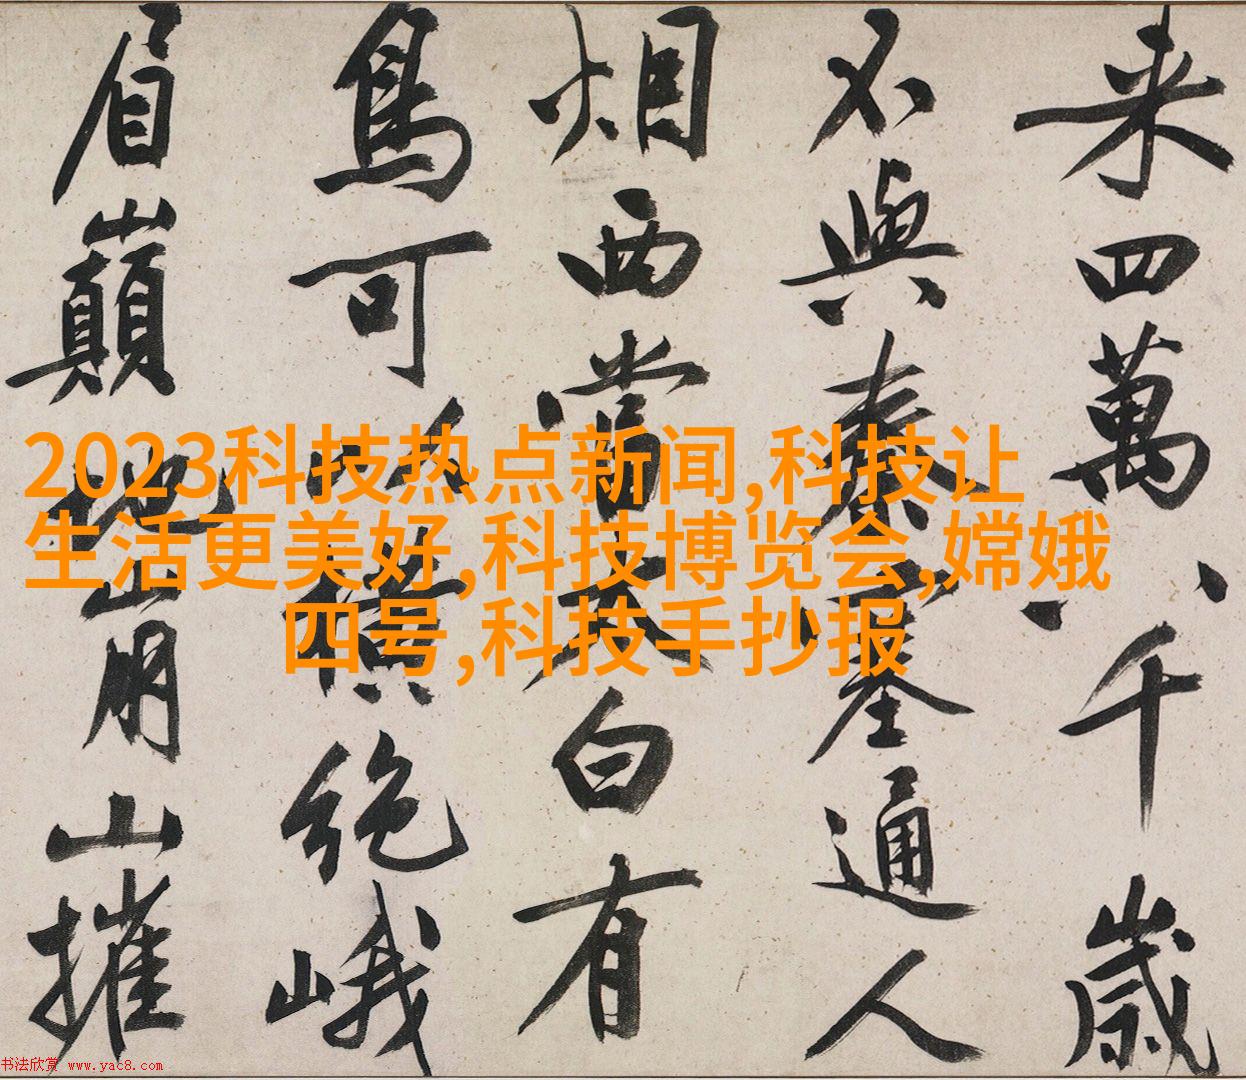 来四萬八千歲
不與秦塞通人
烟西當太白有
鳥可以橫絶峨
眉巔地崩山摧
2023科技热点新闻,科技让
生活更美好,科技博览会,嫦娥
四号,科技手抄报
书法欣赏 www.yac8.com